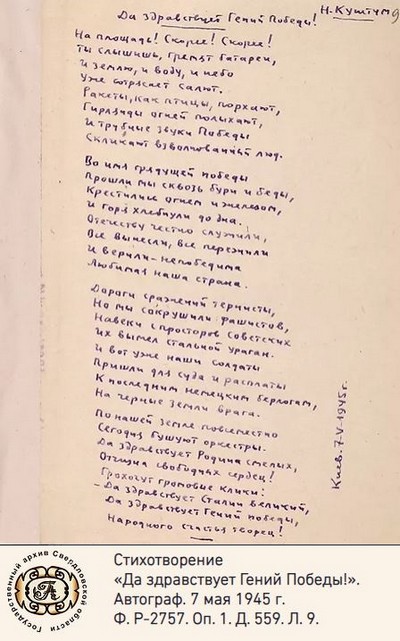 Н. Куштум
Да здравствует Гений Победы!
На площадь! Скорее! Скорее!
Ты слышишь, гремят батареи,
И землю, и воду, и небо
Уже сотрясает салют.
Ракеты, как птицы, порхают,
Гирлянды огней полыхают,
И трубные звуки Победы
Скликают взволнованный люд.
Во имя грядущей победы
Прошли мы сквозь бури и беды,
Крестились огнем и железом,
И горя хлебнули до дна.
Отечеству честно служили,
Все вынесли, все пережили
И верили – непобедима
Любимая наша страна.
Дороги сражений тернисты,
Но мы сокрушили фашистов,
Навеки с просторов советских
Их вымел стальной ураган.
И вот уже наши солдаты
Пришли для суда и расплаты
К последним немецким берлогам,
На черные земли врага.
По нашей земле повсеместно
Сегодня бушуют оркестры.
Да здравствует Родина смелых,
Отчизна свободных сердец!
Грохочут громовые клики:
– Да здравствует Сталин Великий,
Да здравствует Гений победы,
Народного счастья творец!
Киев. 7-V-1945 г.
Государственный архив Свердловской области
Стихотворение
«Да здравствует Гений Победы!».
Автограф. 7 мая 1945 г.
Ф. Р-2757. Оп. 1. Д. 559. Л. 9.